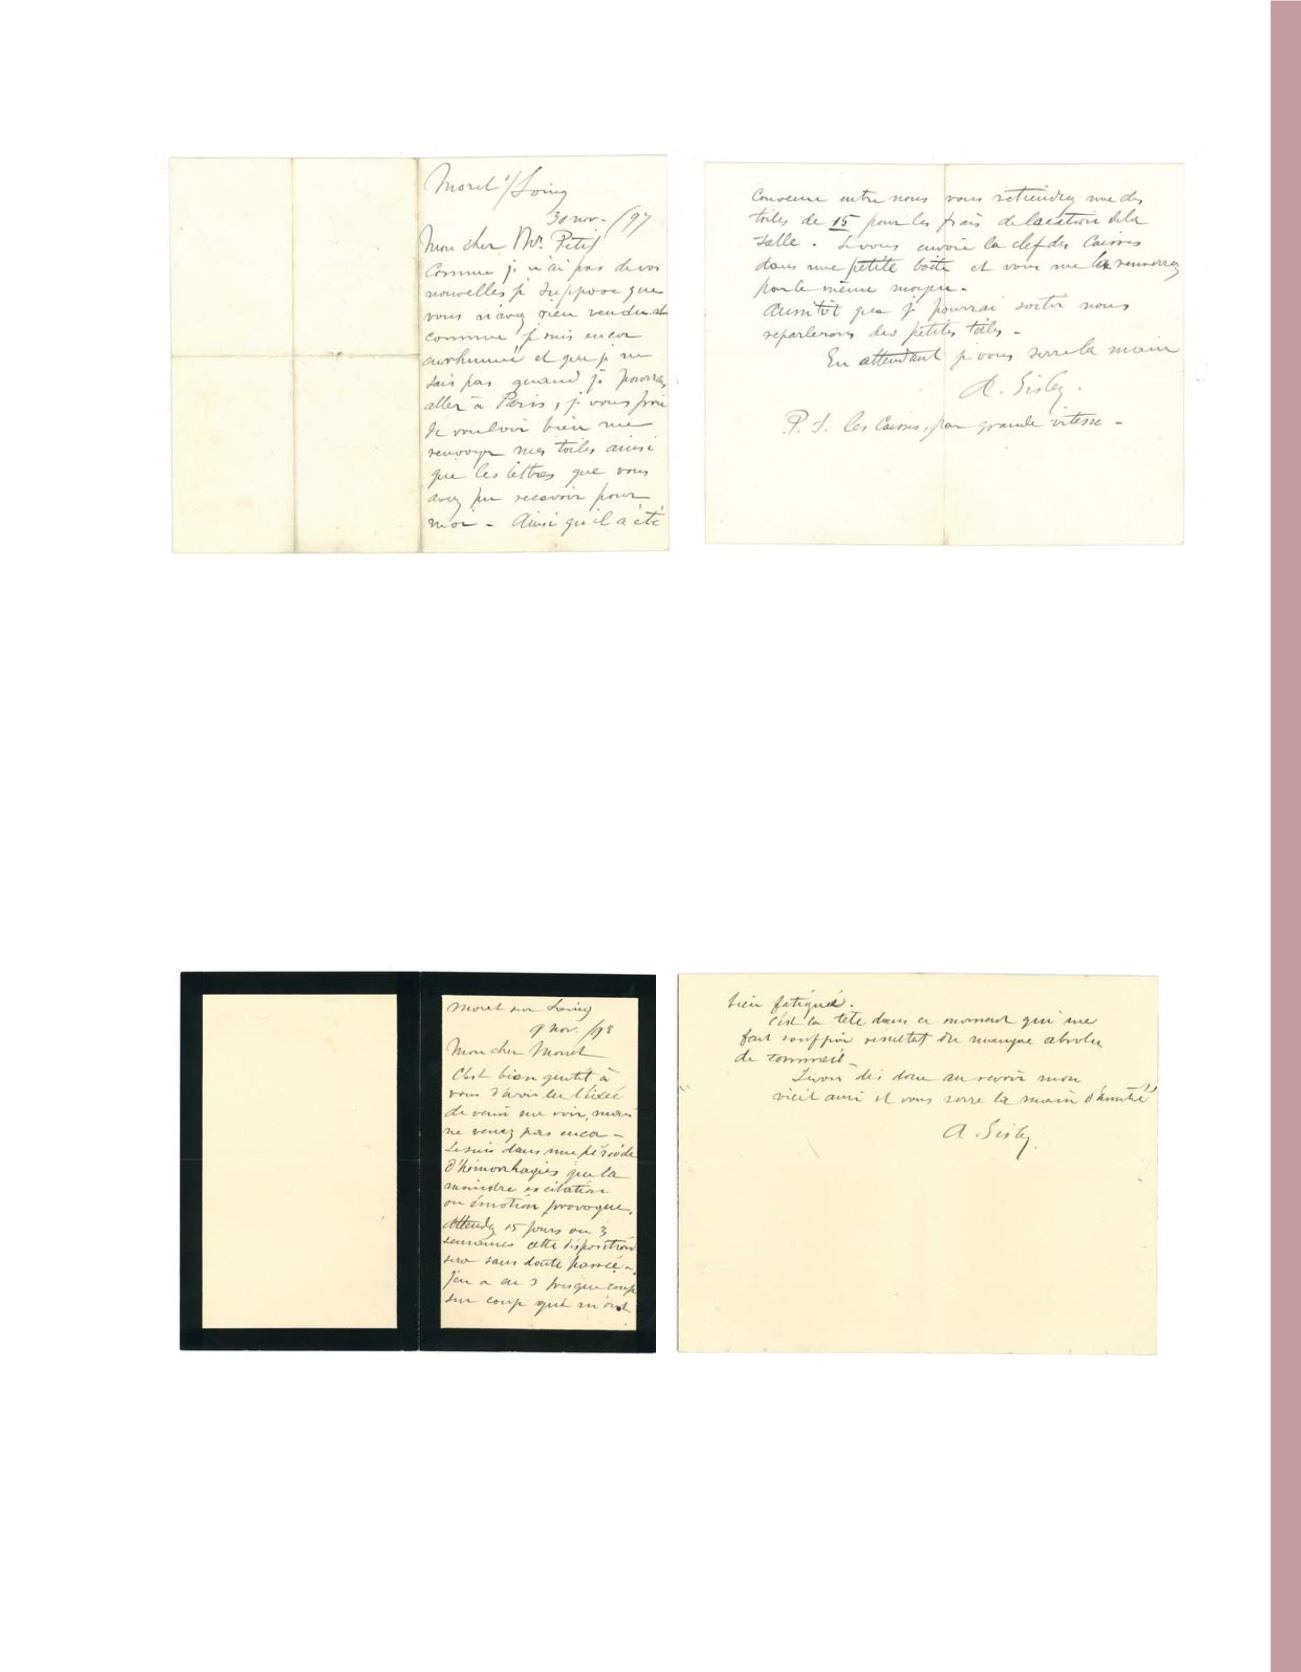 Moret s/Loing
30 nov. /97
Mon cher Mr. Petit
Comme je n'ai pas de vos
nouvelles je suppose que
vous n'avez rien vendu et
comme je suis encor
enrhumé et que je ne
sais pas quand je pourrai
aller à Paris, je vous prie
de vouloir bien me
renvoyer mes toiles ainsi
que les lettres que vous
avez pu recevoir pour
moi - Ainsi qu'il a été
convenu entre nous vous retiendrez une des
toiles de 15 pour les frais de location de la
salle. Je vous envoie la clef des caisses
dans une petite boîte et vous me la renverrez
par le même moyen -
Aussitôt que je pourrai sortir nous
reparlerons des petites toiles -
En attendant je vous serre la main
A. Sisley.
P. S. les caisses, par grande vitesse -
Moret sur Loing
9 nov. /98
Mon cher Monet
C'est bien gentil à
vous d'avoir eu l'idée
de venir me voir, mais
ne venez pas encor -
Je suis dans une période
d'hémorrhagies que la
moindre excitation
ou émotion provoque.
Attendez 15 jours ou 3
semaines cette disposition
sera sans doute passée -
J'en ai eu 3 presque coup
sur coup qui m'ont
bien fatigué.
C'est la tête dans ce moment qui me
fait souffrir résultat du manque absolu
de sommeil -
Je vous dis donc au revoir mon
vieil ami et vous serre la main d'amitié
A. Sisley.